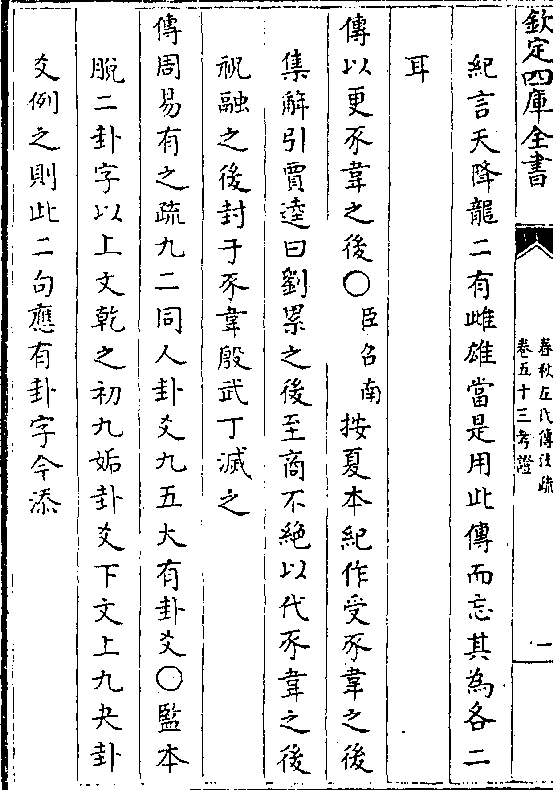 欽定四庫全書
春秋左氏傳注疏
卷五十三考證
一
紀言天降龍二有雌雄當是用此傳而忘其為各二
耳
傳以更豕韋之後〇臣召南按夏本紀作受豕韋之後
集解引賈逵曰劉累之後至商不絶以代豕韋之後
祝融之後封于豕韋殷武丁滅之
傳周易有之疏九二同人卦爻九五大有卦爻〇監本
脫二卦字以上文乾之初九姤卦爻下文上九夬卦
爻例之則此二句應有卦字今添